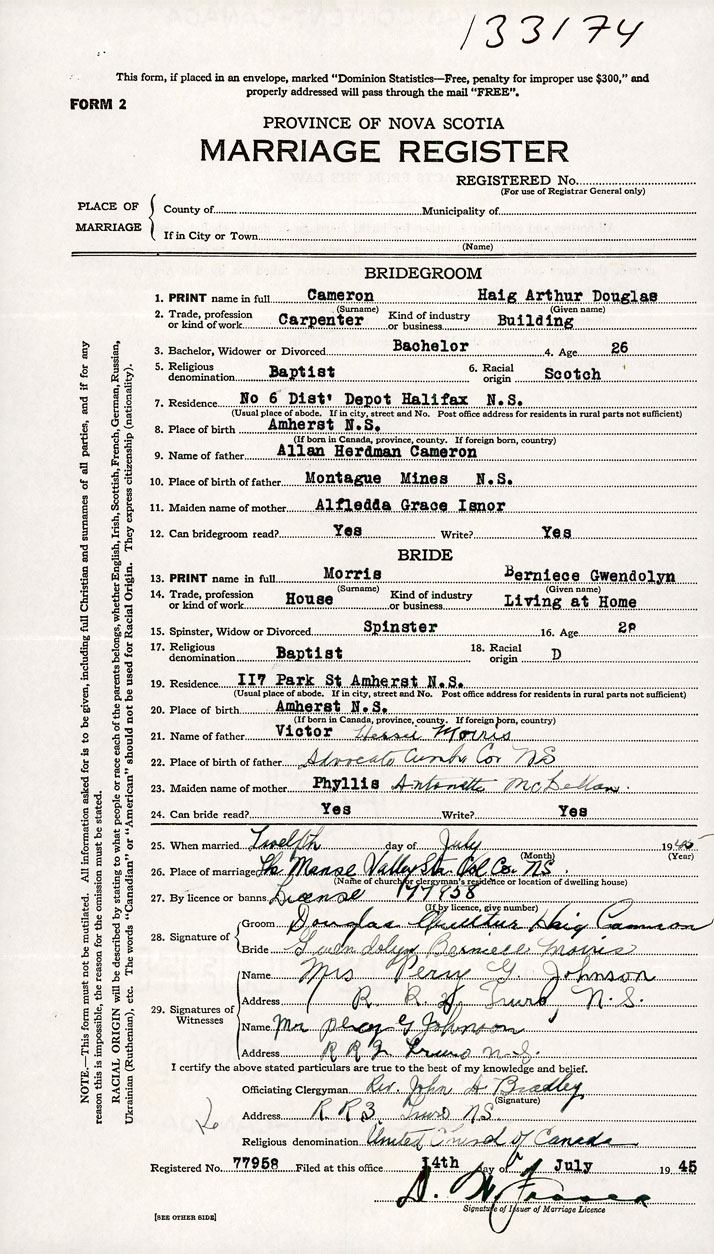 133174
This form, if placed in an envelope, marked “Dominion Statistics—Free, penalty for improper use $300,” and
properly addressed will pass through the mail “FREE”.
FORM 2
PROVINCE OF NOVA SCOTIA
MARRIAGE REGISTER
REGISTERED No.
(For use of Registrar General only)
PLACE OF MARRIAGE
County of Municipality of
If in City or Town
(Name)
BRIDEGROOM
1. PRINT name in full Cameron Haig Arthur Douglas
(Surname) (Given name)
2. Trade, profession or kind of work Carpenter Kind of industry or business Building
3. Bachelor, Widower or Divorced Bachelor 4. Age 26
5. Religious denomination Baptist 6. Racial origin Scotch
7. Residence No 6 Dist' Depot Halifax N.S.
(Usual place of abode. If in city, street and No. Post office address for residents in rural parts not sufficient)
8. Place of birth Amherst N.S.
(If born in Canada, province, county. If foreign born, country)
9. Name of father Allan Herdman Cameron
10. Place of birth of father Montague Mines N.S.
11. Maiden name of mother Alfledda Grace Isnor
12. Can bridegroom read? Yes Write? Yes
BRIDE
13. PRINT name in full Morris Berniece Gwendolyn
(Surname) (Given name)
14. Trade, profession or kind of work House Kind of industry or business Living at Home
15. Spinster, Widow or Divorced Spinster 16. Age
17. Religious denomination Baptist 18. Racial origin D
19. Residence 117 Park St Amherst N.S.
(Usual place of abode. If in city, street and No. Post office address for residents in rural parts not sufficient)
20. Place of birth Amherst N.S.
(If born in Canada, province, county. If foreign born, country)
21. Name of father Victor Morris
22. Place of birth of father Advocate Cumb. Co. NS
23. Maiden name of mother Phyllis Antonette
24. Can bride read? Yes Write? Yes
25. When married Twelfth day of July 1945
(Month) (Year)
26. Place of marriage The Manse Valley Sta. Col. Co. NS.
(Name of church or clergyman's residence or location of dwelling house)
27. By licence or banns License
(If by licence, give number)
28. Signature of
Groom Douglas Arthur Haig Cameron
Bride Gwendolyn Berniece Morris
29. Signatures of Witnesses
Name Mrs Percy G. Johnson
Address R. R. Truro, N.S.
Name Mr Percy G Johnson
Address R R Truro N.S.
I certify the above stated particulars are true to the best of my knowledge and belief.
Officiating Clergyman Rev. John A Bradley
(Signature)
Address R R 3 Truro NS.
Religious denomination United Church of Canada
Registered No. 77958 Filed at this office 14th day of July 1945
D. W. Fraser
Signature of Issuer of Marriage Licence
[SEE OTHER SIDE]
NOTE.—This form must not be mutilated. All information asked for is to be given, including full Christian and surnames of all parties, and if for any
reason this is impossible, the reason for the omission must be stated.
RACIAL ORIGIN will be described by stating to what people or race each of the parents belongs, whether English, Irish, Scottish, French, German, Russian,
Ukrainian (Ruthenian), etc. The words “Canadian” or “American” should not be used for Racial Origin. They express citizenship (nationality).